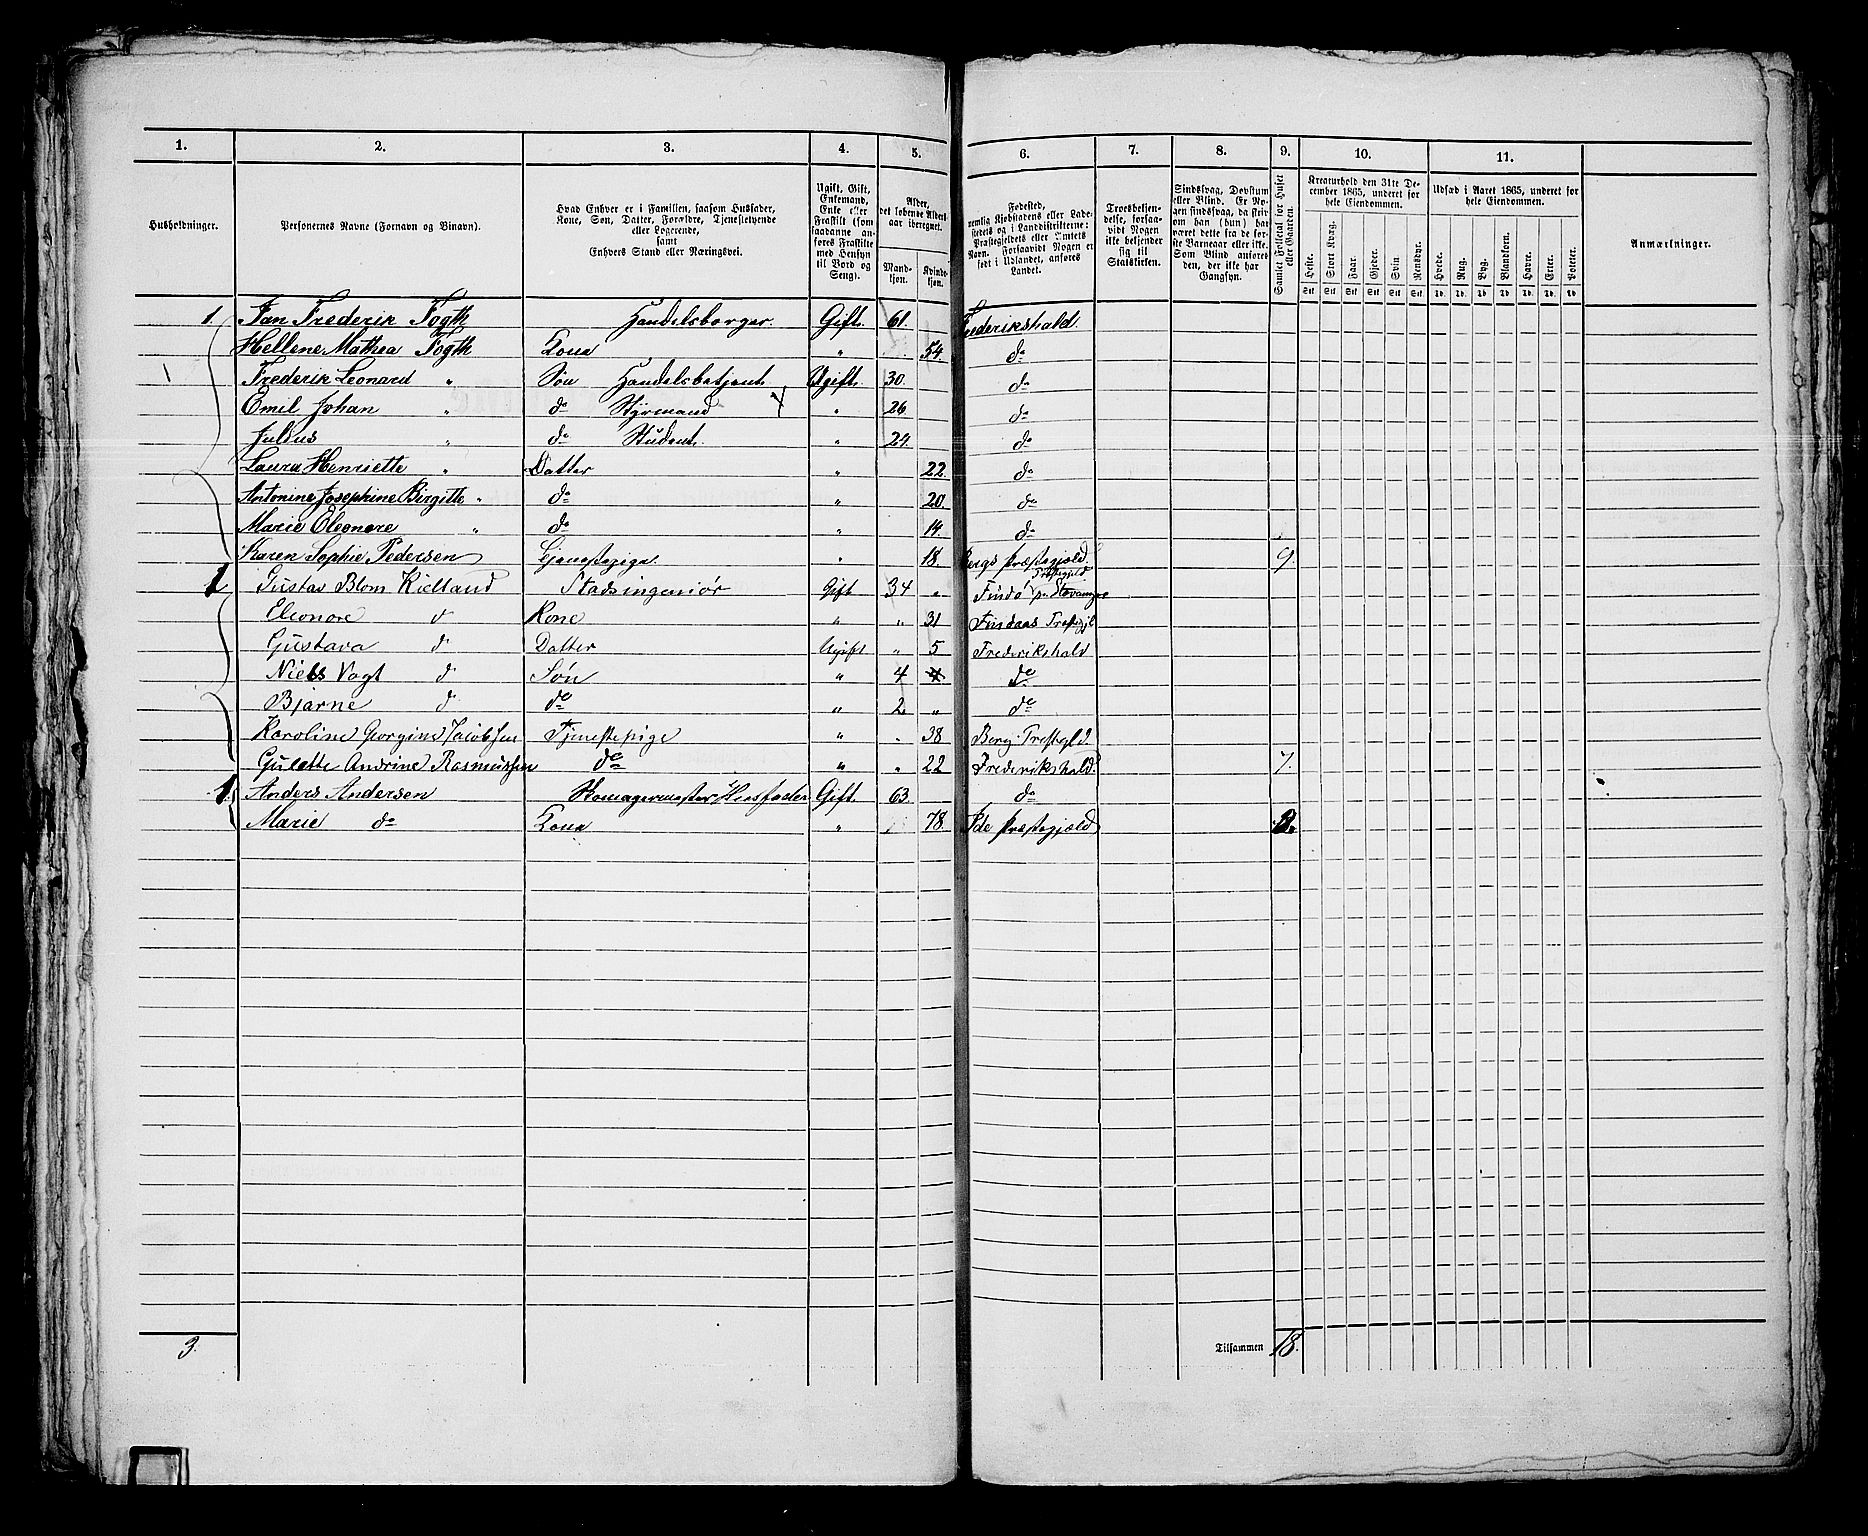 1. 2. 3. 4. 5. 6. 7. 8. 9. 10. 11.
Husholdninger.
Personernes Navne (Fornavn og Binavn).
Hvad Enhver er i Familien, saasom Husfader,
Kone, Søn, Datter, Forældre, Tjenestetyende
eller Logerende,
samt
Enhvers Stand eller Næringsvei.
Ugift, Gift,
Enkemand,
Enke eller
Fraskilt (som
saadanne an-
føres Fraskilte
med Hensyn
til Bord og
Seng).
Alder,
det løbende Alders-
aar iberegnet.
Mand-
kjøn.
Kvinde-
kjøn.
Fødested,
nemlig Kjøbstadens eller Lade-
stedets og i Landdistrikterne:
Præstegjeldets eller Amtets
Navn. Forsaavidt Nogen er
født i Udlandet, anføres
Landet.
Troesbekjen-
delse, forsaa-
vidt Nogen
ikke bekjender
sig til
Statskirken.
Sindssvag, Døvstum
eller Blind. Er No-
gen sindssvag, da skriv
om han (hun) har
været dette fra de før-
ste Barneaar eller ikke.
Som Blind anføres
den, der ikke har
Gangsyn.
Samlet Folketal for Huset
eller Gaarden.
Kreaturhold den 31te De-
cember 1865, underet for
hele Eiendommen.
Heste. Stort Kvæg. Faar. Gjeder. Svin. Rensdyr.
Stk Stk Stk Stk Stk Stk
Udsæd i Aaret 1865, underet for
hele Eiendommen.
Hvede. Rug. Byg. Blandkorn. Havre. Erter. Poteter.
Td. Td. Td. Td. Td. Td. Td.
Anmærkninger.
1. Jan Frederik Fogth Handelsborger. Gift. 61. Frederikshald.
Hellene Mathea Fogth Kone " 54. do
1 Frederik Leonard " Søn Handelsbetjent Ugift. 30. do
Emil Johan " do Styrmand " 26. do
Julius " do Student. " 24. do
Laura Henriette " Datter " 22. do
Antonine Josephine Birgitte " do " 20. do
Marie Eleonore " do " 14. do
Karen Sophie Pedersen Tjenestepige. " 18. Bergs Præstegjeld 9.
1 Gustav Blom Kielland Stadsingeniør Gift 34 " Findø Præstegjeld pr. Stavanger
Eleonore do Kone " " 31 Præstgjl
Gustava do Datter Ugift " 5 Frederikshald
Niels Vogt do Søn " 4 do
Bjarne do do " 2 " do
Karoline Georgine Jacobsen Tjenestepige " " 38 Berg Prestegld.
Gulette Andrine Rasmussen do " " 22 Frederikshald. 7.
1. Anders Andersen Skomagermester, Huusfader Gift. 63. do
Marie do Kone " 78. Ide Præstegjæld 2.
3. Tilsammen 18.